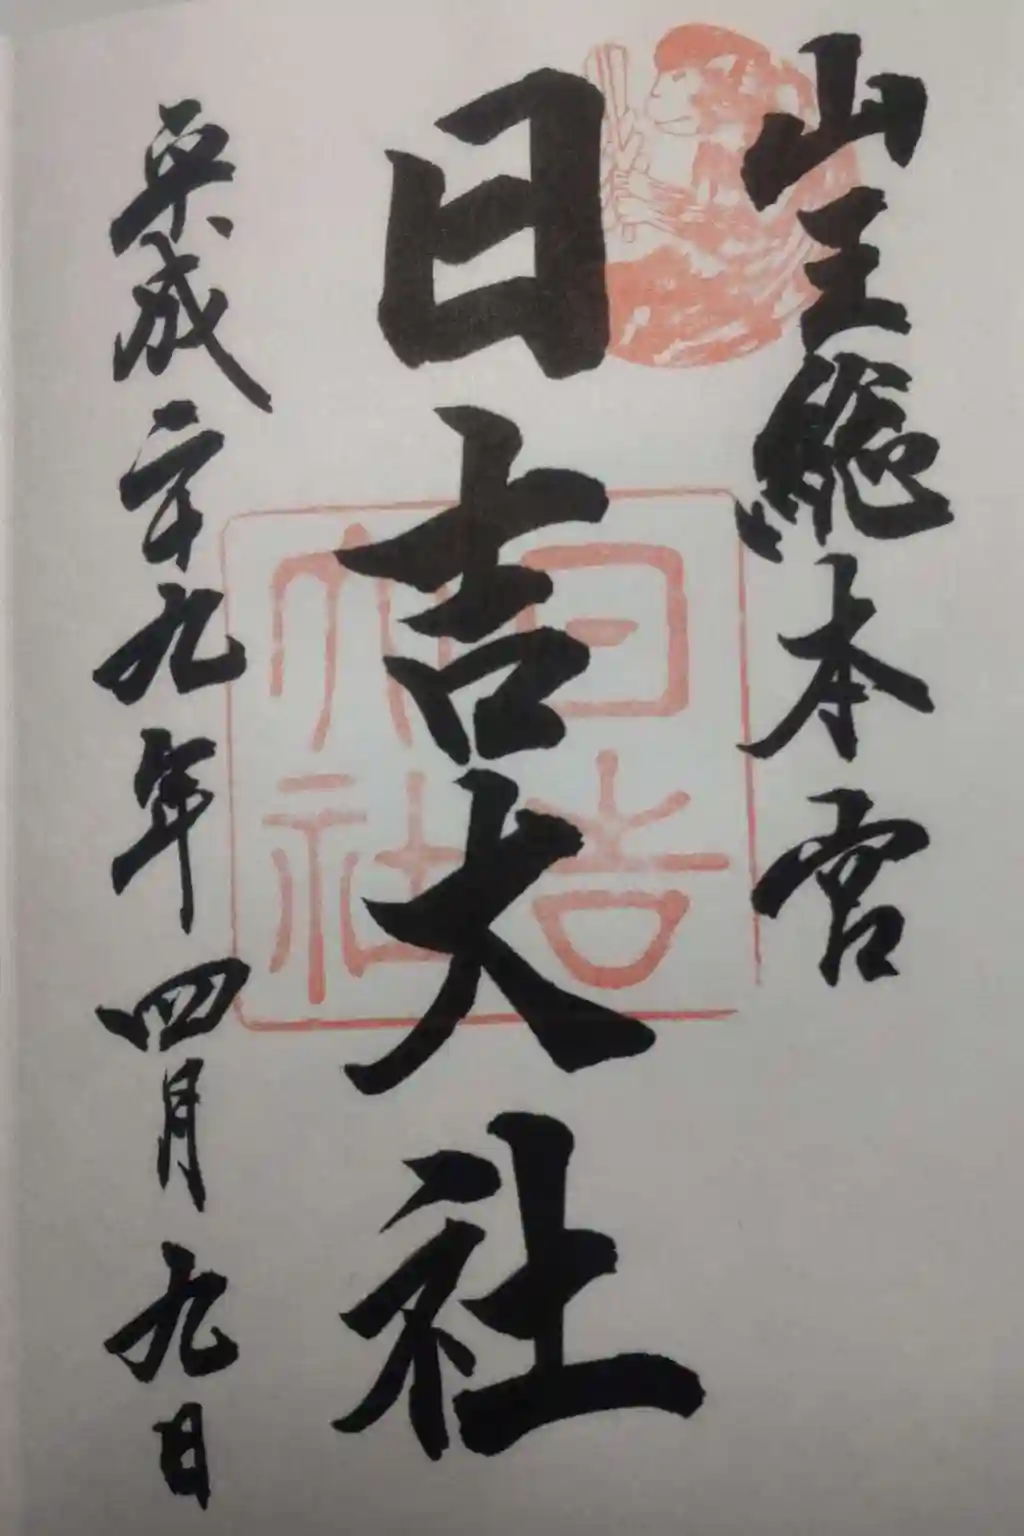 山王総本宮
日吉大社
平成二十九年四月九日
日吉
大社